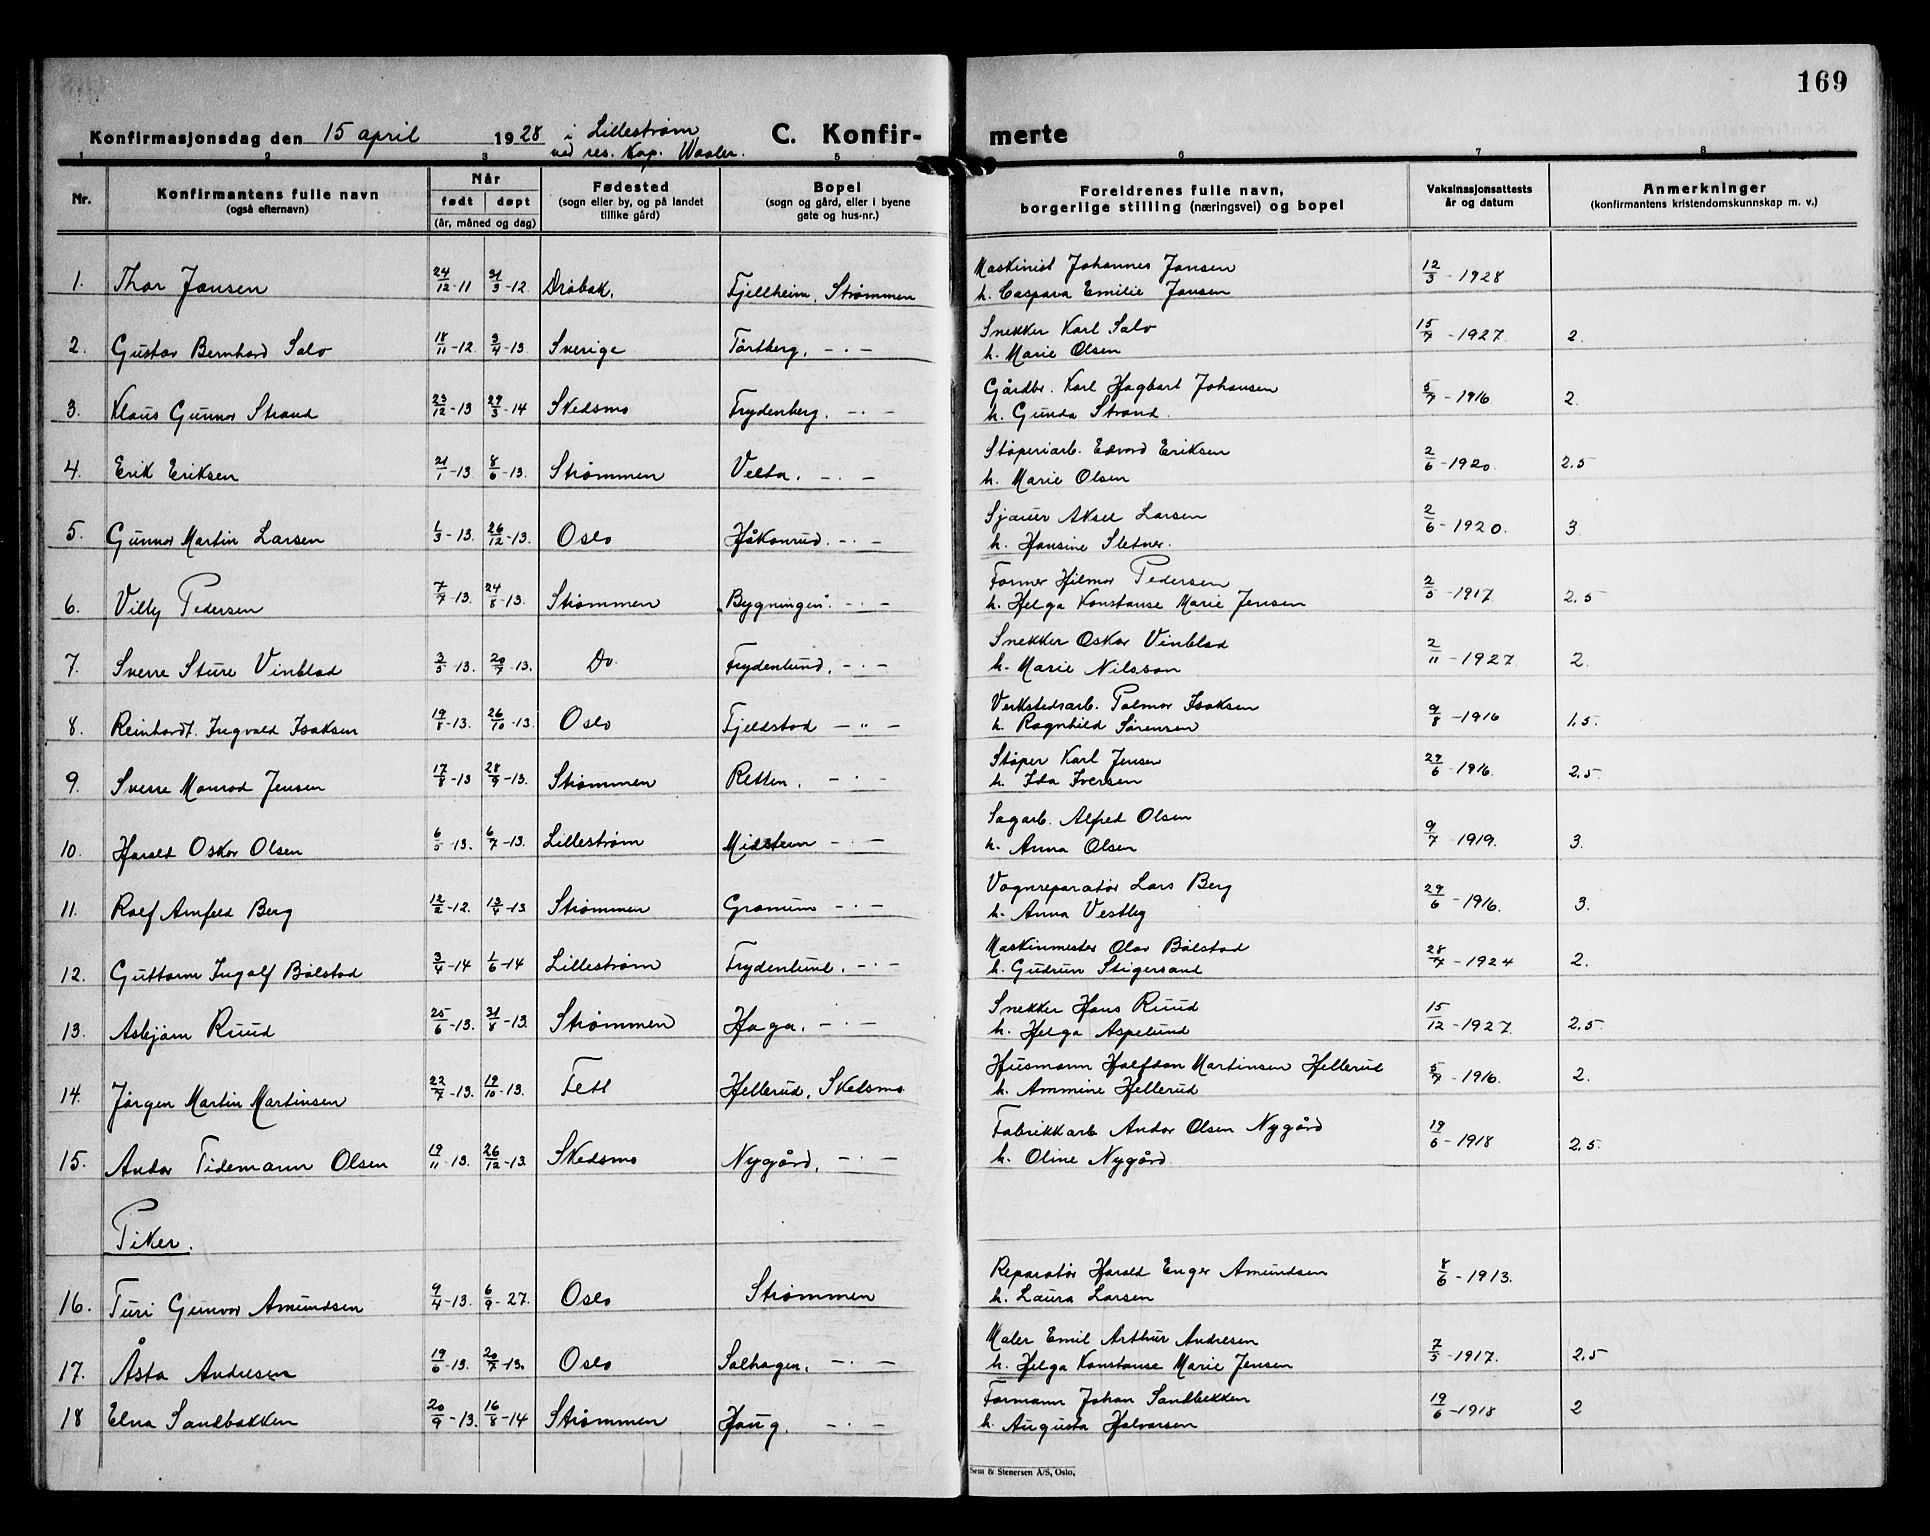 169
Konfirmasjonsdag den 15 april 1928 i Lillestrøm C. Konfir- merte
ved res. Kap. Waaler.
1 2 3 5 6 7 8
Nr. Konfirmantens fulle navn (også efternavn) Når født døpt (år, måned og dag) Fødested (sogn eller by, og på landet tillike gård) Bopel (sogn og gård, eller i byene gate og hus-nr.) Foreldrenes fulle navn, borgerlige stilling (næringsvei) og bopel Vaksinasjonsattests år og datum Anmerkninger (konfirmantens kristendomskunnskap m. v.)
1. Thor Jansen 24/12-11 31/3-12 Drøbak, Fjellheim, Strømmen Maskinist Johannes Jansen 12/3-1928
h. Caspara Emilie Jansen
2. Gustav Bernhard Salo 18/11-12 3/4-13 Sverige Tørtberg, -.- Snekker Karl Salo 15/7-1927. 2.
h. Marie Olsen
3. Klaus Gunnar Strand 23/12-13 29/3-14 Skedsmo Frydenberg, -.- Gårdbr. Karl Hagbart Johansen 5/7-1916 2.
h. Gunda Strand.
4. Erik Eriksen 21/1-13 8/6-13. Strømmen Velta, -.- Støperiarb. Edvard Eriksen 2/6-1920. 2.5
h. Marie Olsen
5. Gunnar Martin Larsen 1/3-13. 26/12-13. Oslo Håkonrud. -.- Sjauer Aksel Larsen 2/6-1920. 3.
h. Hansine Sletner.
6. Villy Pedersen 7/7-13. 24/8-13. Strømmen "Bygningen". -.- Former Hilmar Pedersen 2/5-1917. 2.5
h. Helga Konstanse Marie Jensen
7. Sverre Sture Vinblad 3/5-13. 20/7-13. Do. Frydenlund, -.- Snekker Oskar Vinblad 2/11-1927. 2.
h. Marie Nilsson
8. Reinhardt Ingvald Isaksen 19/8-13. 26/10-13. Oslo Fjeldstad - " - Verkstedsarb. Palmar Isaksen 9/8-1916 1.5.
h. Ragnhild Sørensen
9. Sverre Monrad Jensen 17/8-13 28/9-13. Strømmen Retten. -.- Støper Karl Jensen 29/6-1916. 2.5.
h. Ida Iversen
10. Harald Oskar Olsen 6/5-13. 6/7-13. Lillestrøm Midsteen -.- Sagarb. Alfred Olsen 9/7-1919. 3.
h. Anna Olsen
11. Rolf Arnfeld Berg 12/2-12. 13/4-13 Strømmen Granum -.- Vognreparatør Lars Berg 29/6-1916. 3.
h. Anna Vestby
12. Guttorm Ingolf Bølstad 3/4-14 1/6-14 Lillestrøm Frydenlund. -.- Maskinmester Olav Bølstad 28/7-1924 2.
h. Gudrun Stigersand
13. Asbjørn Ruud 25/6-13. 31/8-13. Strømmen Haga, -.- Snekker Hans Ruud 15/12-1927. 2.5.
h. Helga Aspelund
14. Jørgen Martin Martinsen 22/7-13. 19/10-13. Fett Hellerud, Skedsmo Husmann Halfdan Martinsen Hellerud 5/7-1916. 2.
h. Ammine Hellerud
15. Andor Tidemann Olsen 19/11-13. 26/12-13. Skedsmo Nygård, -.- Fabrikkarb Andor Olsen Nygård 19/6-1918 2.5
h. Oline Nygård.
Piker.
16. Turi Gunvor Amundsen 9/4-13. 6/9-27. Oslo Strømmen Reparatør Harald Enger Amundsen 8/6-1913.
h. Laura Larsen
17. Åsta Andresen 19/6-13. 20/7-13. Oslo Solhagen, -.- Maler Emil Arthur Andresen 7/5-1917. 2.5
h. Helga Konstanse Marie Jensen
18 Elna Sandbakken 20/9-13. 16/8-14 Strømmen Haug. -.- Formann Johan Sandbekken 19/6-1918 2
h. Augusta Halvorsen
Sem & Stenersen A/S, Oslo.